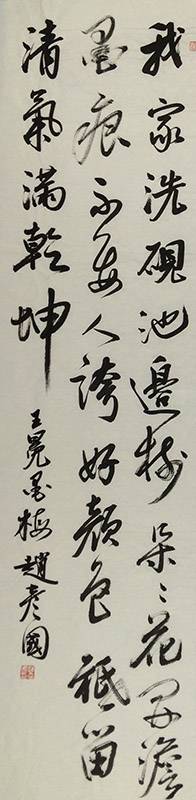 我家洗硯池邊樹朶〻花開澹
墨痕不要人誇好顔色祇留
清氣滿乾坤
王冕墨梅趙彦國